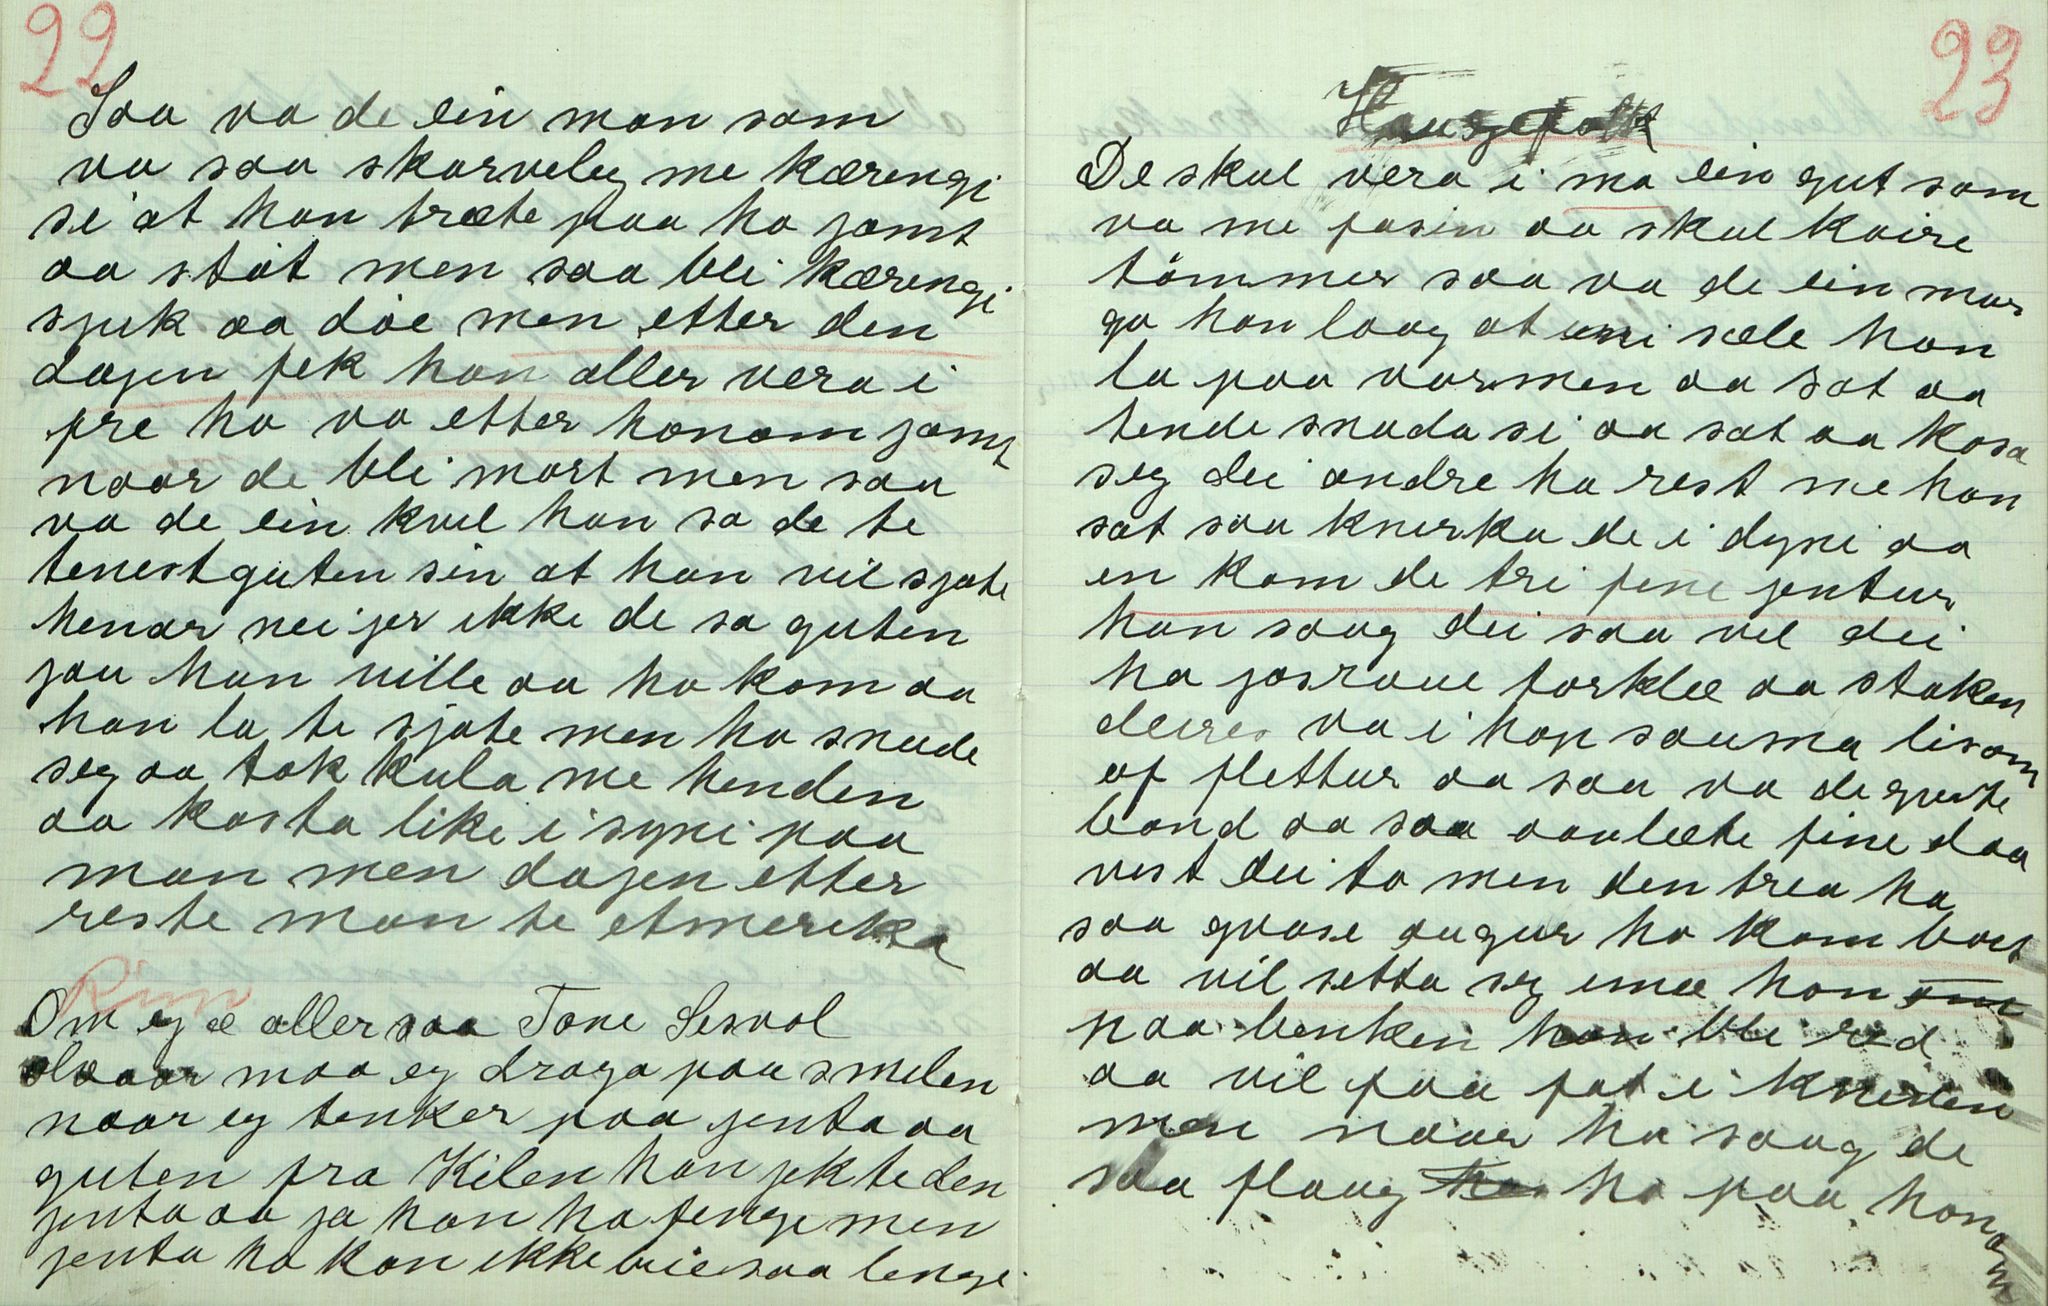 22
Saa va de ein man som
va saa skarveleg me kærengi
si at han træte paa ho jamt
aa støt men saa blei kærengi
sjuk aa døe men etter den
dagen fek han aller vera i
fre ho va etter honom jamt
naar de blei mørt men saa
va de ein kvel han sa de te
tenestguten sin at han vil sjøte
henar nei jer ikke de sa guten
jau han ville aa ho kom aa
han la te sjøte men ho snude
seg aa tok kula me henden
aa kasta like i syni paa
man men dagen etter
reste man te etmerika
Rim
Om eg æ aller saa Tone Lesvol
maa eg draga paa smilen
naar eg tenker paa jenta aa
guten fra Kilen han jekte den
jenta aa ja han ha fenge men
jenta ho kan ikke bie saa lenge
23
Haugefolk
De skul vera i ma ein gut som
va me fasin aa skul køire
tømmer saa va de ein mor
go han laag at eni sæle han
la paa varmen aa sat aa
tende snada si aa sat aa kosa
seg dei andre ha rest me han
sat saa knirka de i dyni aa
en kom de tri fine jentur
han saag dei saa vel dei
ha josraue forklæ aa staken
deires va i hop sauma lisom
af flettur aa saa va de gveste
bond aa saa aavlæte fine daa
vest dei to men den trea ha
saa gvase augur ho kom bort
aa vil setta seg imæ han
paa benken han blei red
aa vil faa fat i kniven
men naar ho saag de
saa flaug ho paa honom